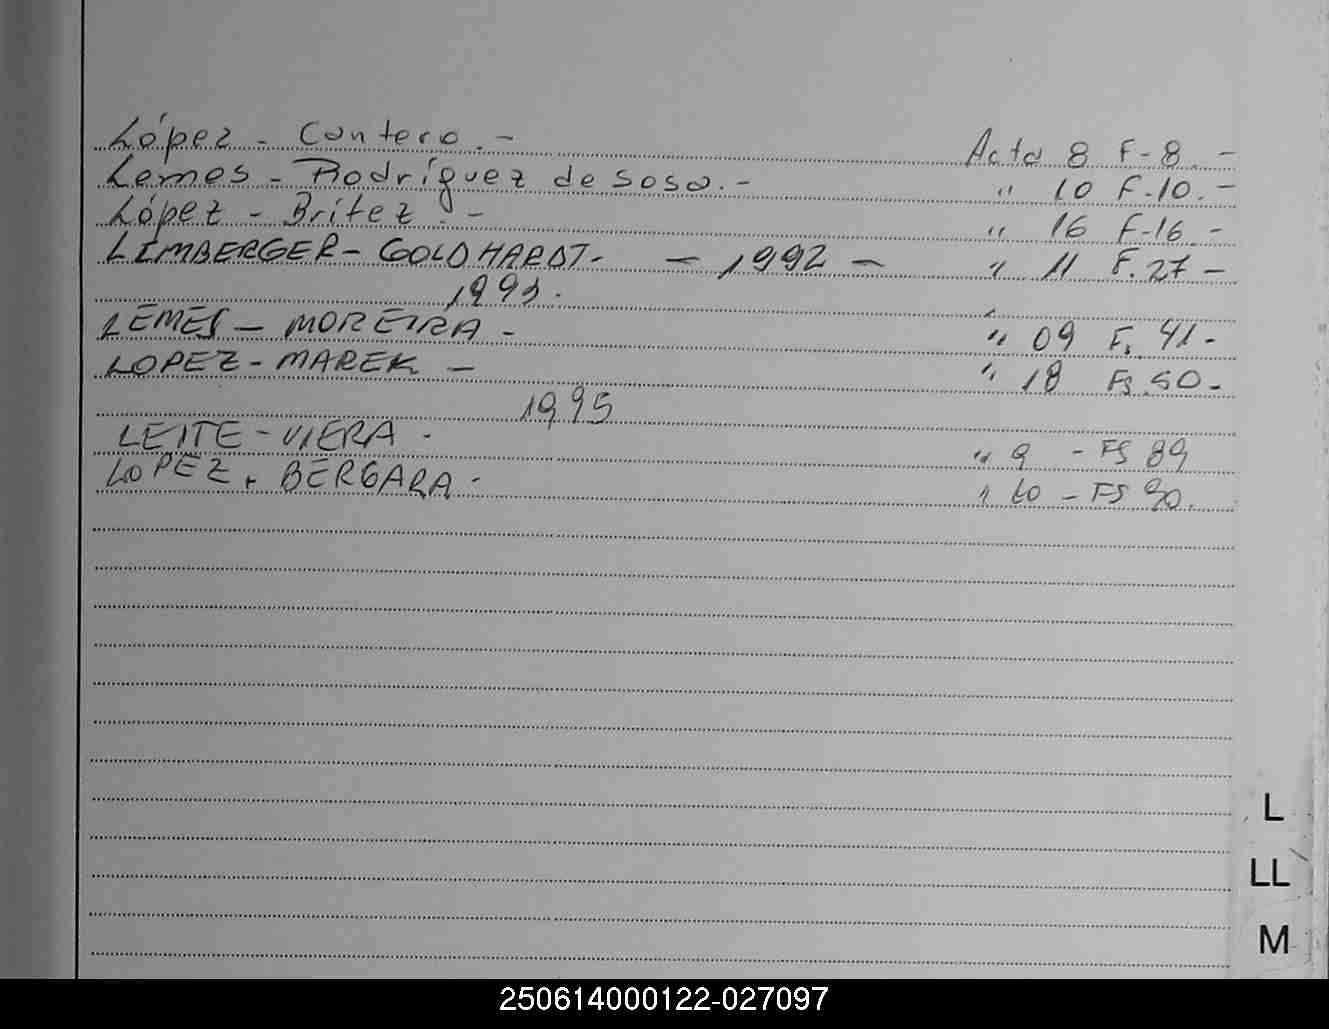 López - Cantero. - Acta 8 F-8. -
Lemes - Rodríguez de Sosa. - " 10 F-10. -
López - Britez. - " 16 F-16 -
LIMBERGER - GOLDHARDT - - 1992 - " 11 F. 27 -
1993.
LEMES - MOREIRA - " 09 Fs 41 -
LOPEZ - MAREK - " 18 Fs 50 -
1995
LEITE - VIERA - " 9 - FS 89
LOPEZ - BERGARA - " 10 - FS 90.
L
LL
M
250614000122-027097